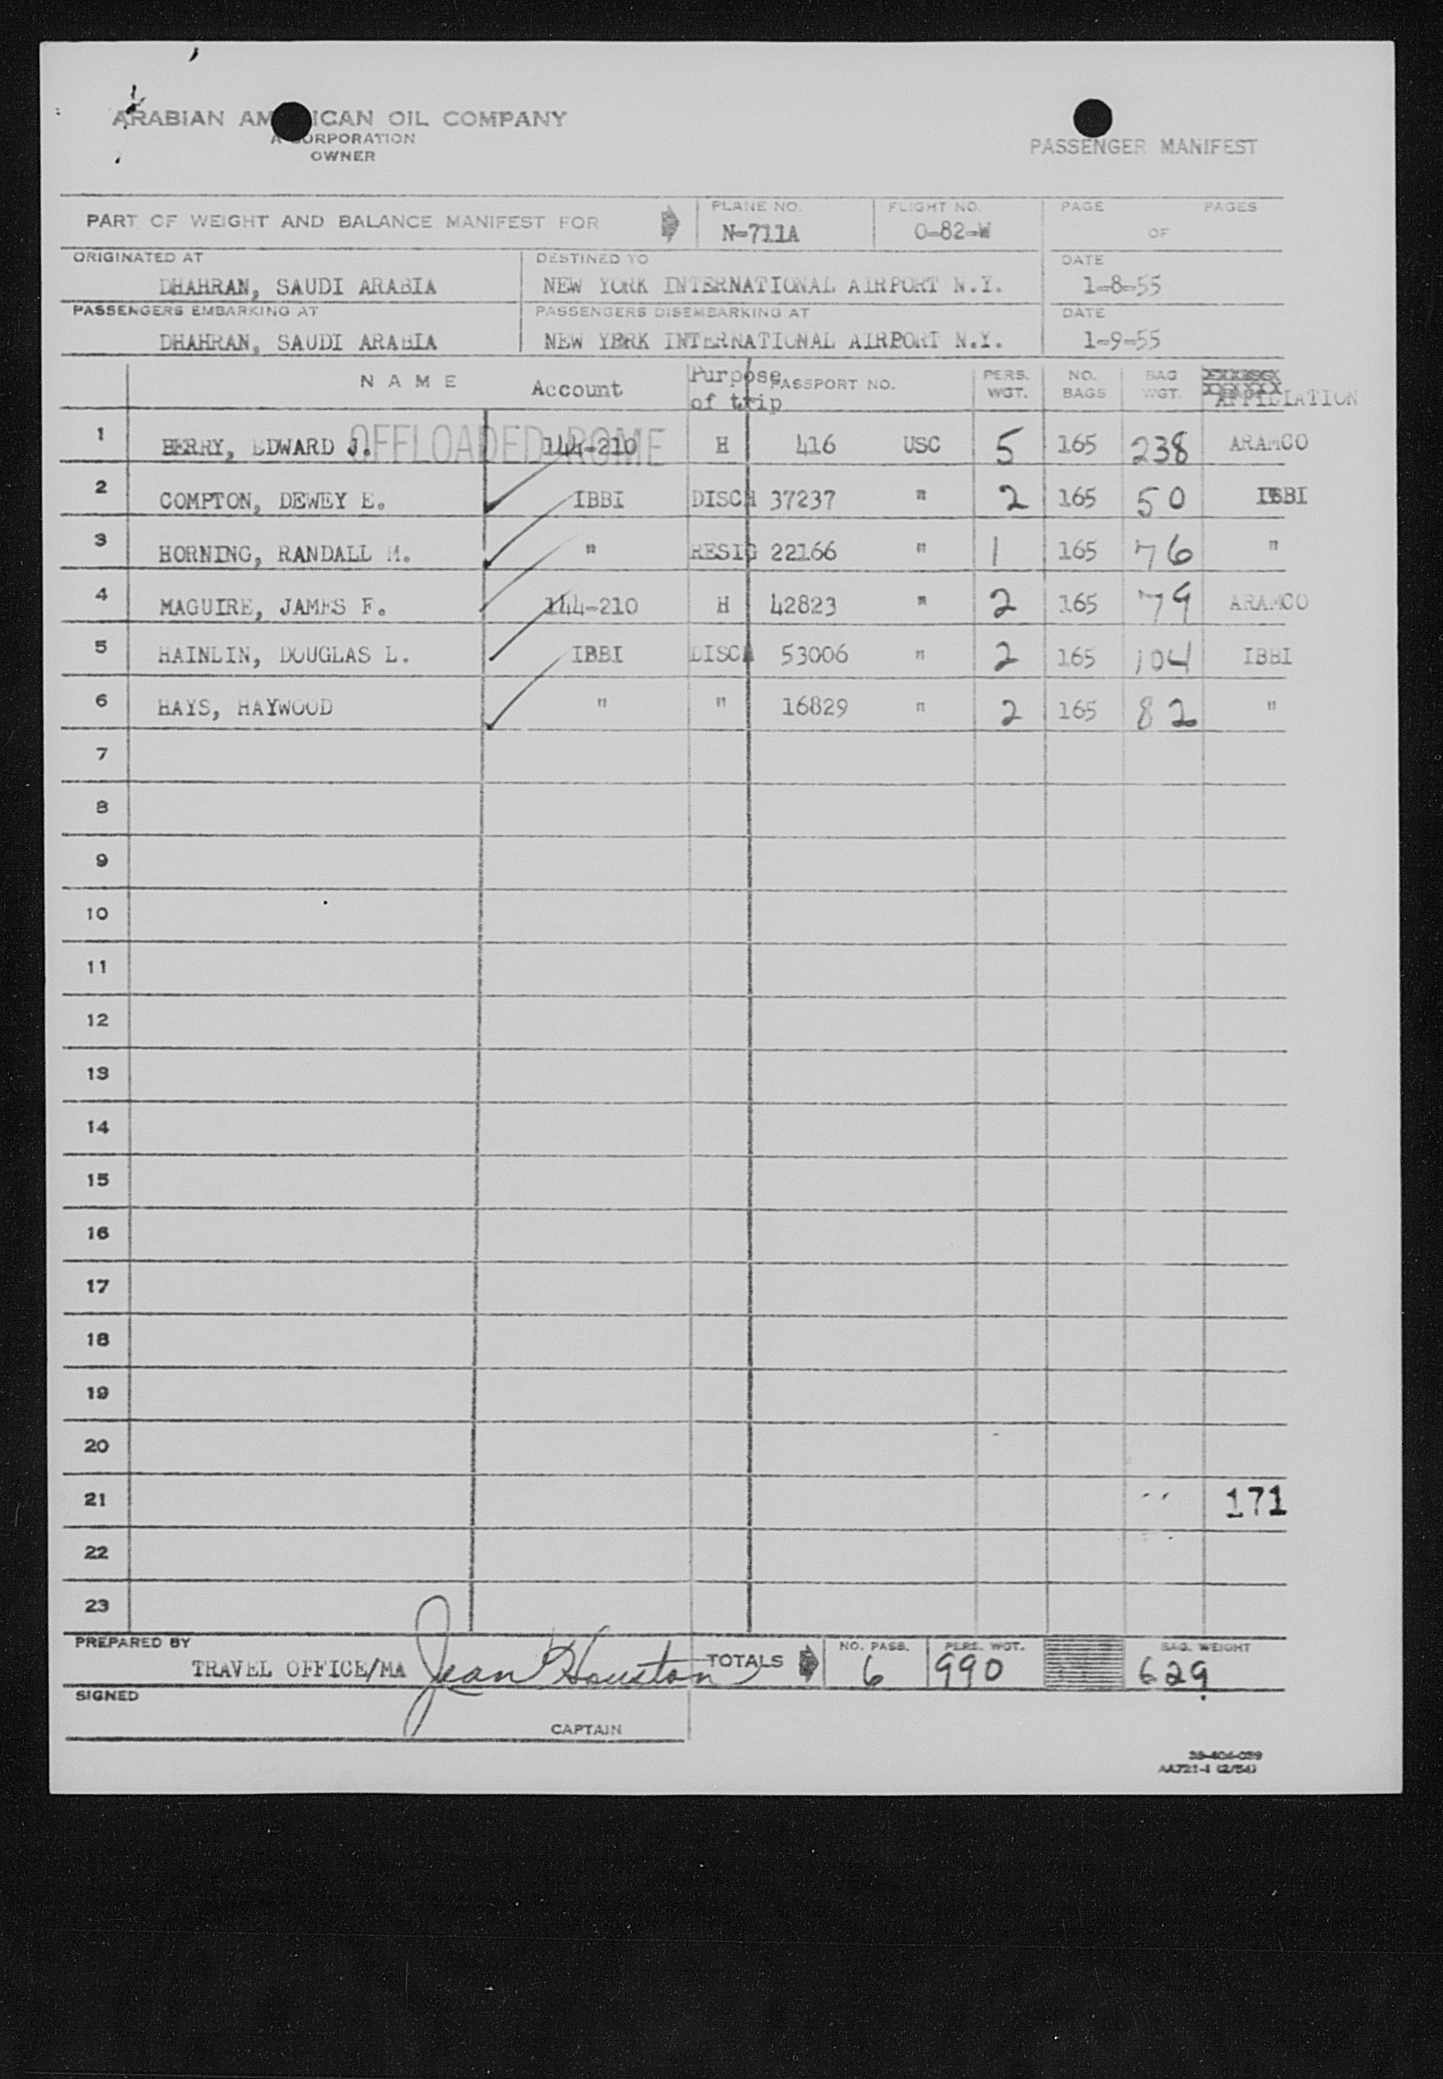 ARABIAN AMERICAN OIL COMPANY
A CORPORATION
OWNER
PASSENGER MANIFEST
PART OF WEIGHT AND BALANCE MANIFEST FOR PLANE NO. N-711A FLIGHT NO. O-82-W PAGE OF PAGES
ORIGINATED AT DESTINED TO DATE
DHAHRAN, SAUDI ARABIA NEW YORK INTERNATIONAL AIRPORT N.Y. 1-8-55
PASSENGERS EMBARKING AT PASSENGERS DISEMBARKING AT DATE
DHAHRAN, SAUDI ARABIA NEW YERK INTERNATIONAL AIRPORT N.Y. 1-9-55
NAME Account Purpose of trip PASSPORT NO. PERS. WGT. NO. BAGS BAG WGT. AFFILIATION
1 BERRY, EDWARD J. OFFLOADED ROME 144-210 H 416 USC 5 165 238 ARAMCO
2 COMPTON, DEWEY E. IBBI DISCH 37237 " 2 165 50 IBBI
3 HORNING, RANDALL M. " RESIG 22166 " 1 165 76 "
4 MAGUIRE, JAMES F. 144-210 H 42823 " 2 165 79 ARAMCO
5 HAINLIN, DOUGLAS L. IBBI DISCH 53006 " 2 165 104 IBBI
6 HAYS, HAYWOOD " " 16829 " 2 165 82 "
7
8
9
10
11
12
13
14
15
16
17
18
19
20
21 171
22
23
PREPARED BY TRAVEL OFFICE/MA Jean Houston TOTALS NO. PASS. 6 PERS. WGT. 990 BAG. WEIGHT 629
SIGNED
CAPTAIN
AA721-1 (2/54)